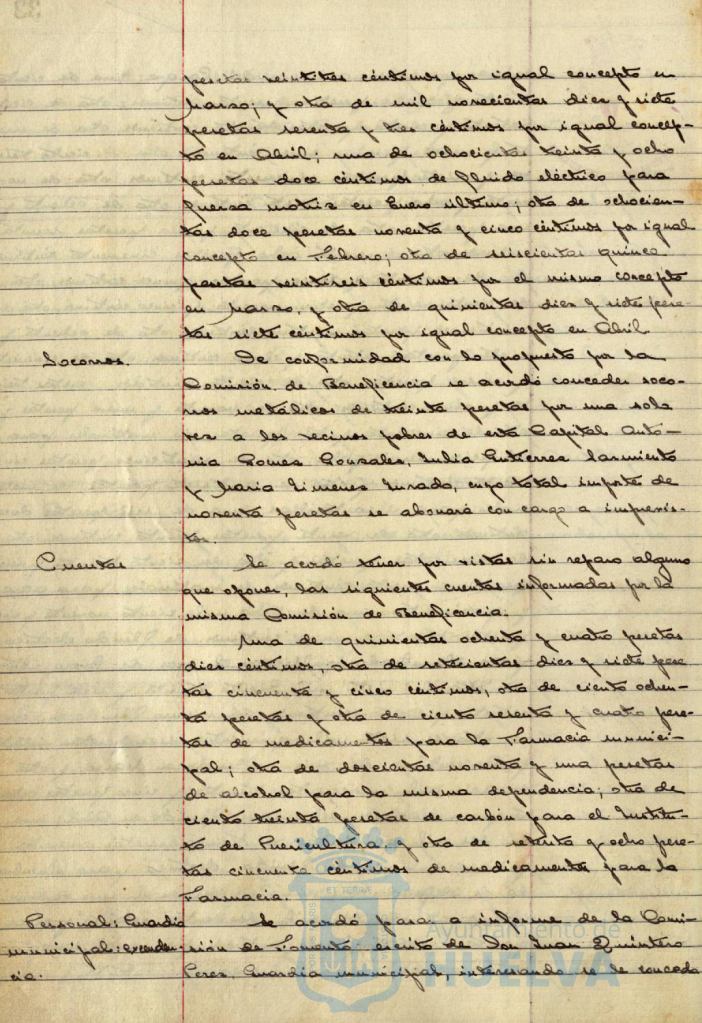 pesetas veintitres céntimos por igual concepto en
Marzo; y otra de mil novecientas diez y siete
pesetas sesenta y tres céntimos por igual concep-
to en Abril; una de ochocientas treinta y ocho
pesetas doce céntimos de fluido eléctrico para
fuerza motriz en Enero último; otra de ochocien-
tas doce pesetas noventa y cinco céntimos por igual
concepto en Febrero; otra de seiscientas quince
pesetas veintiseis céntimos por el mismo concepto
en Marzo, y otra de quinientas diez y siete pese-
tas siete céntimos por igual concepto en Abril
Socorros. De conformidad con lo propuesto por la
Comisión de Beneficencia se acordó conceder soco-
rros metálicos de treinta pesetas por una sola
vez a los vecinos pobres de esta Capital Antó-
nia Gomez Gonzalez, Julia Gutierrez Sarmiento
y Maria Jimenez Jurado, cuyo total importe de
noventa pesetas se abonará con cargo a imprevis-
tos.
Cuentas Se acordó tener por vistas sin reparo alguno
que oponer, las siguientes cuentas informadas por la
misma Comisión de Beneficencia.
Una de quinientas ochenta y cuatro pesetas
diez céntimos, otra de setecientas diez y siete pese
tas cincuenta y cinco céntimos, otra de ciento ochen-
ta pesetas y otra de ciento sesenta y cuatro pese-
tas de medicamentos para la Farmacia munici-
pal; otra de doscientas noventa y una pesetas
de alcohol para la misma dependencia; otra de
ciento treinta pesetas de carbón para el Institu-
to de Puericultura, y otra de setenta y ocho pese-
tas cincuenta céntimos de medicamentos para la
Farmacia.
Personal: Guardia Se acordó pasar a informe de la Comi-
municipal: exceden- sión de Fomento escrito de Don Juan Quintero
cia. Perez, Guardia municipal, interesando se le conceda
Ayuntamiento de
HUELVA